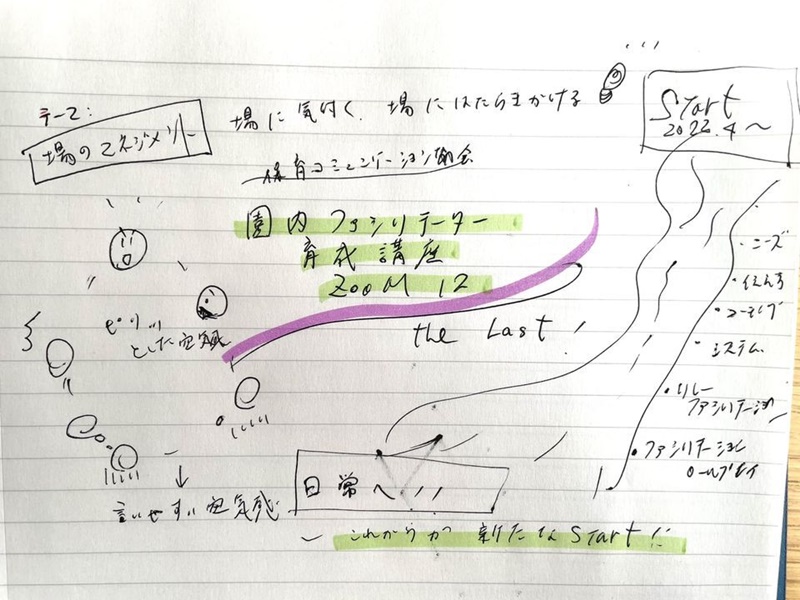 テーマ:
場のマネジメント
場に気付く、場にはたらきかける
保育コミュニケーション協会
Start
2022.4〜
園内ファシリテーター
育成講座
ZOOM 12
the Last!
ピリッ
とした空気感
↓
言いやすい空気感
・ニーズ
・伝え方
・コーチング
・システム
・リレー
ファシリテーション
・ファシリテーション
ロールプレイ
日常へ!!
〜これからが 新たなStart!!